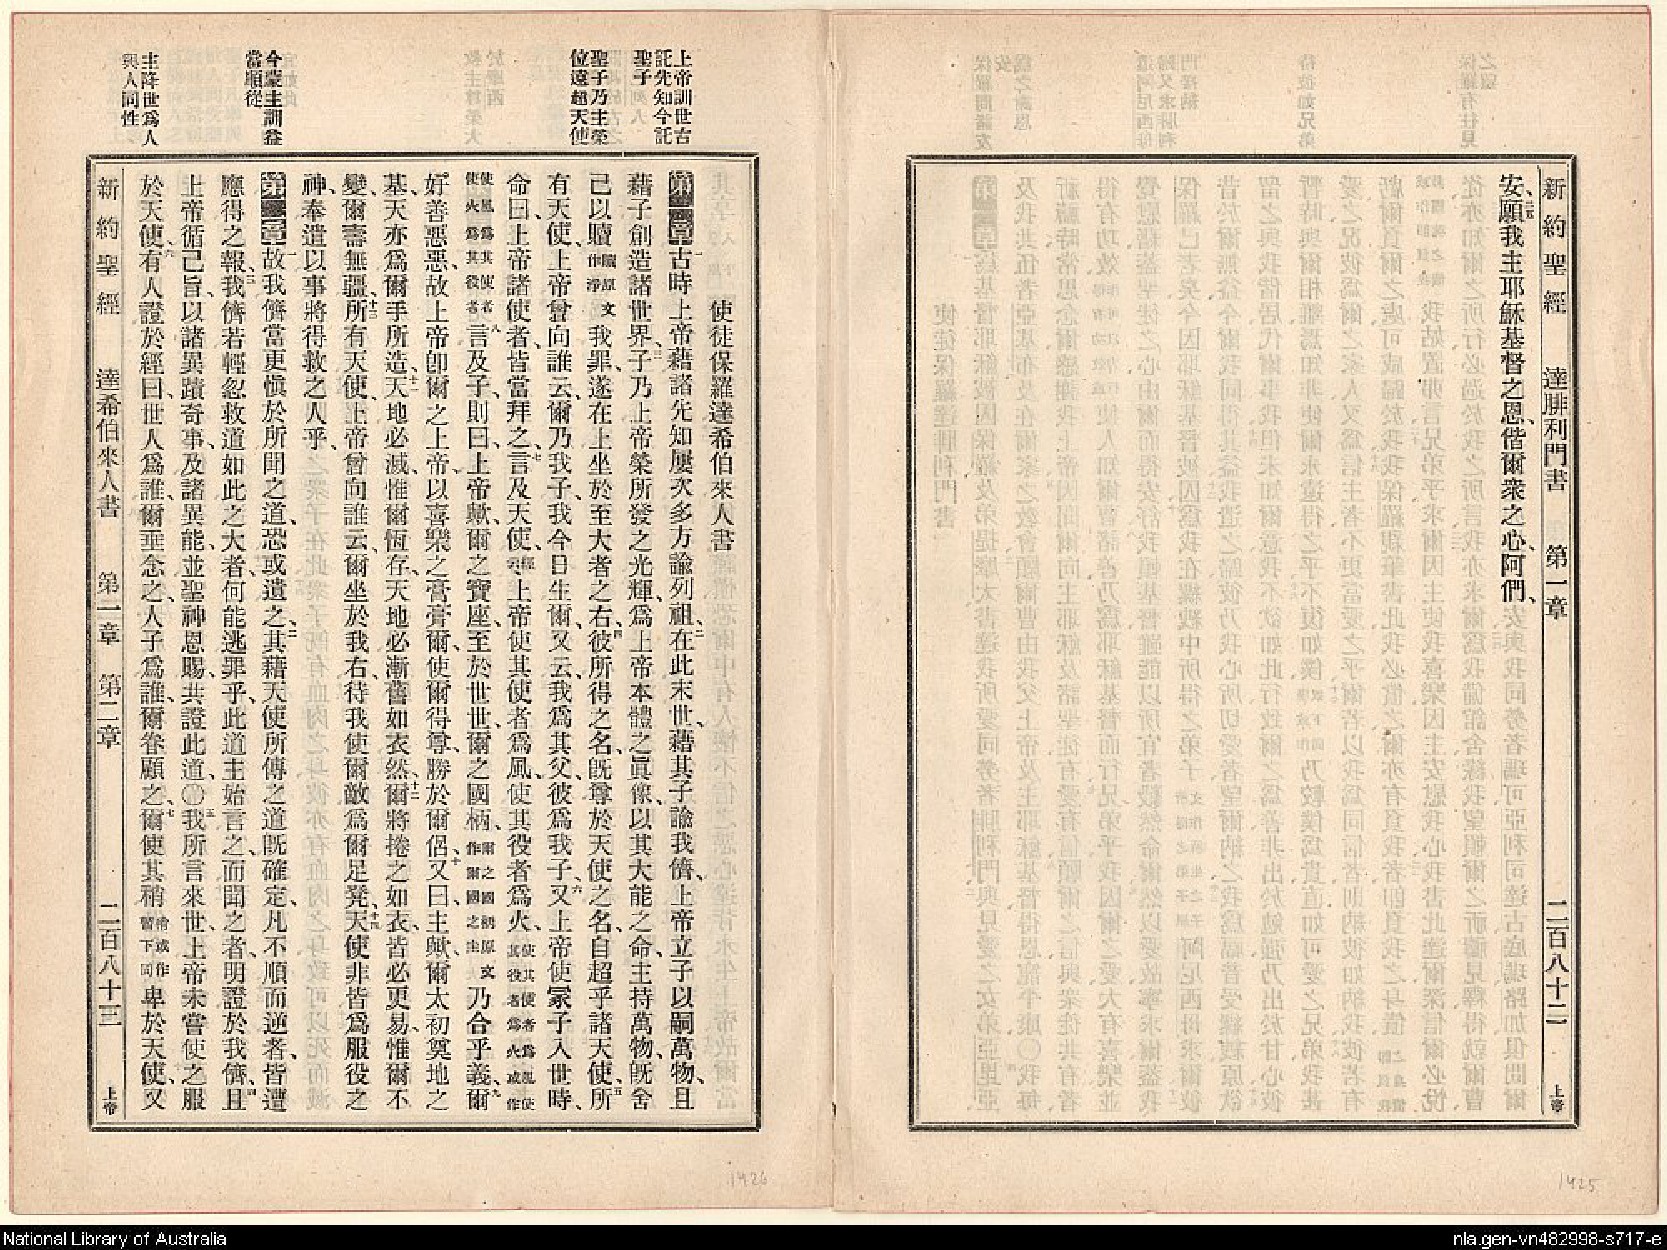 新約聖經 達腓利門書 第一章 二百八十二 上帝
安、願我主耶穌基督之恩、偕爾衆之心、阿們、
1425
上帝訓世古
託先知今託
聖子
聖子乃主榮
位遠超天使
今蒙主訓益
當順從
主降世爲人
與人同性
使徒保羅達希伯來人書
第一章 一古時上帝藉諸先知屢次多方諭列祖、二在此末世、藉其子諭我儕、上帝立子以嗣萬物、且
藉子創造諸世界、三子乃上帝榮所發之光輝、爲上帝本體之眞像、以其大能之命、主持萬物、既舍
己以贖贖原文作淨我罪、遂在上坐於至大者之右、四彼所得之名、既尊於天使之名、自超乎諸天使、五所
有天使、上帝曾向誰云、爾乃我子、我今日生爾、又云、我爲其父、彼爲我子、六又上帝使冢子入世時、
命曰、上帝諸使者皆當拜之、七言及天使、經云上帝使其使者爲風、使其役者爲火、使其使者爲風使其役者爲火或作
使風爲其使者使火爲其役者八言及子、則曰、上帝歟、爾之寶座、至於世世、爾之國柄、爾之國柄原文作爾國之主乃合乎義、九爾
好善惡惡、故上帝卽爾之上帝、以喜樂之膏膏爾、使爾得尊、勝於爾侶、十又曰、主歟、爾太初奠地之
基、天亦爲爾手所造、十一天地必滅、惟爾恆存、天地必漸舊如衣然、十二爾將捲之如衣、皆必更易、惟爾不
變、爾壽無疆、十三所有天使、上帝曾向誰云、爾坐於我右、待我使爾敵爲爾足凳、十四天使非皆爲服役之
神、奉遣以事將得救之人乎、
第二章 一故我儕當更愼於所聞之道、恐或遺之、二其藉天使所傳之道、既確定、凡不順而逆者、皆遭
應得之報、三我儕若輕忽救道如此之大者、何能逃罪乎、此道主始言之、而聞之者、明證於我儕、四且
上帝循己旨、以諸異蹟奇事、及諸異能、並聖神恩賜、共證此道、〇五我所言來世、上帝未嘗使之服
於天使、六有人證於經曰、世人爲誰、爾垂念之、人子爲誰、爾眷顧之、七爾使其稍稍或作暫下同卑於天使、又
新約聖經 達希伯來人書 第一章 第二章 二百八十三 上帝
1426
National Library of Australia
nla.gen-vn482998-s717-e